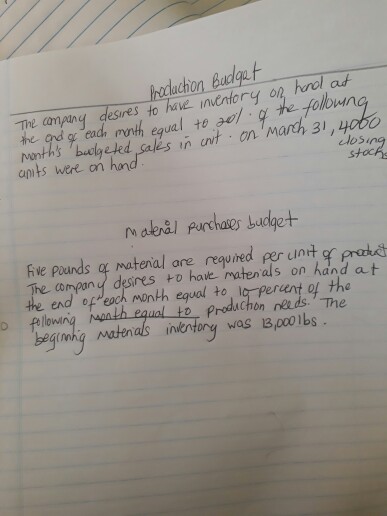 Production Budget
The company desires to have inventory on hand at
the end of each month equal to 20% of the following
month's budgeted sales in unit. on March 31, 4000
closing
stock
units were on hand.
Material purchases budget
Five pounds of material are required per unit of product
The company desires to have materials on hand at
the end of each month equal to 10 percent of the
following month equal to production needs. The
beginning materials inventory was 13,000 lbs.